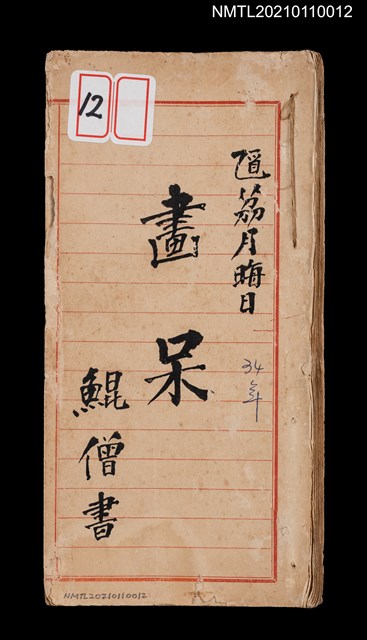 NMTL20210110012
12
荔月晦日
34年
畫呆
鯤僧書
NMTL20210110012